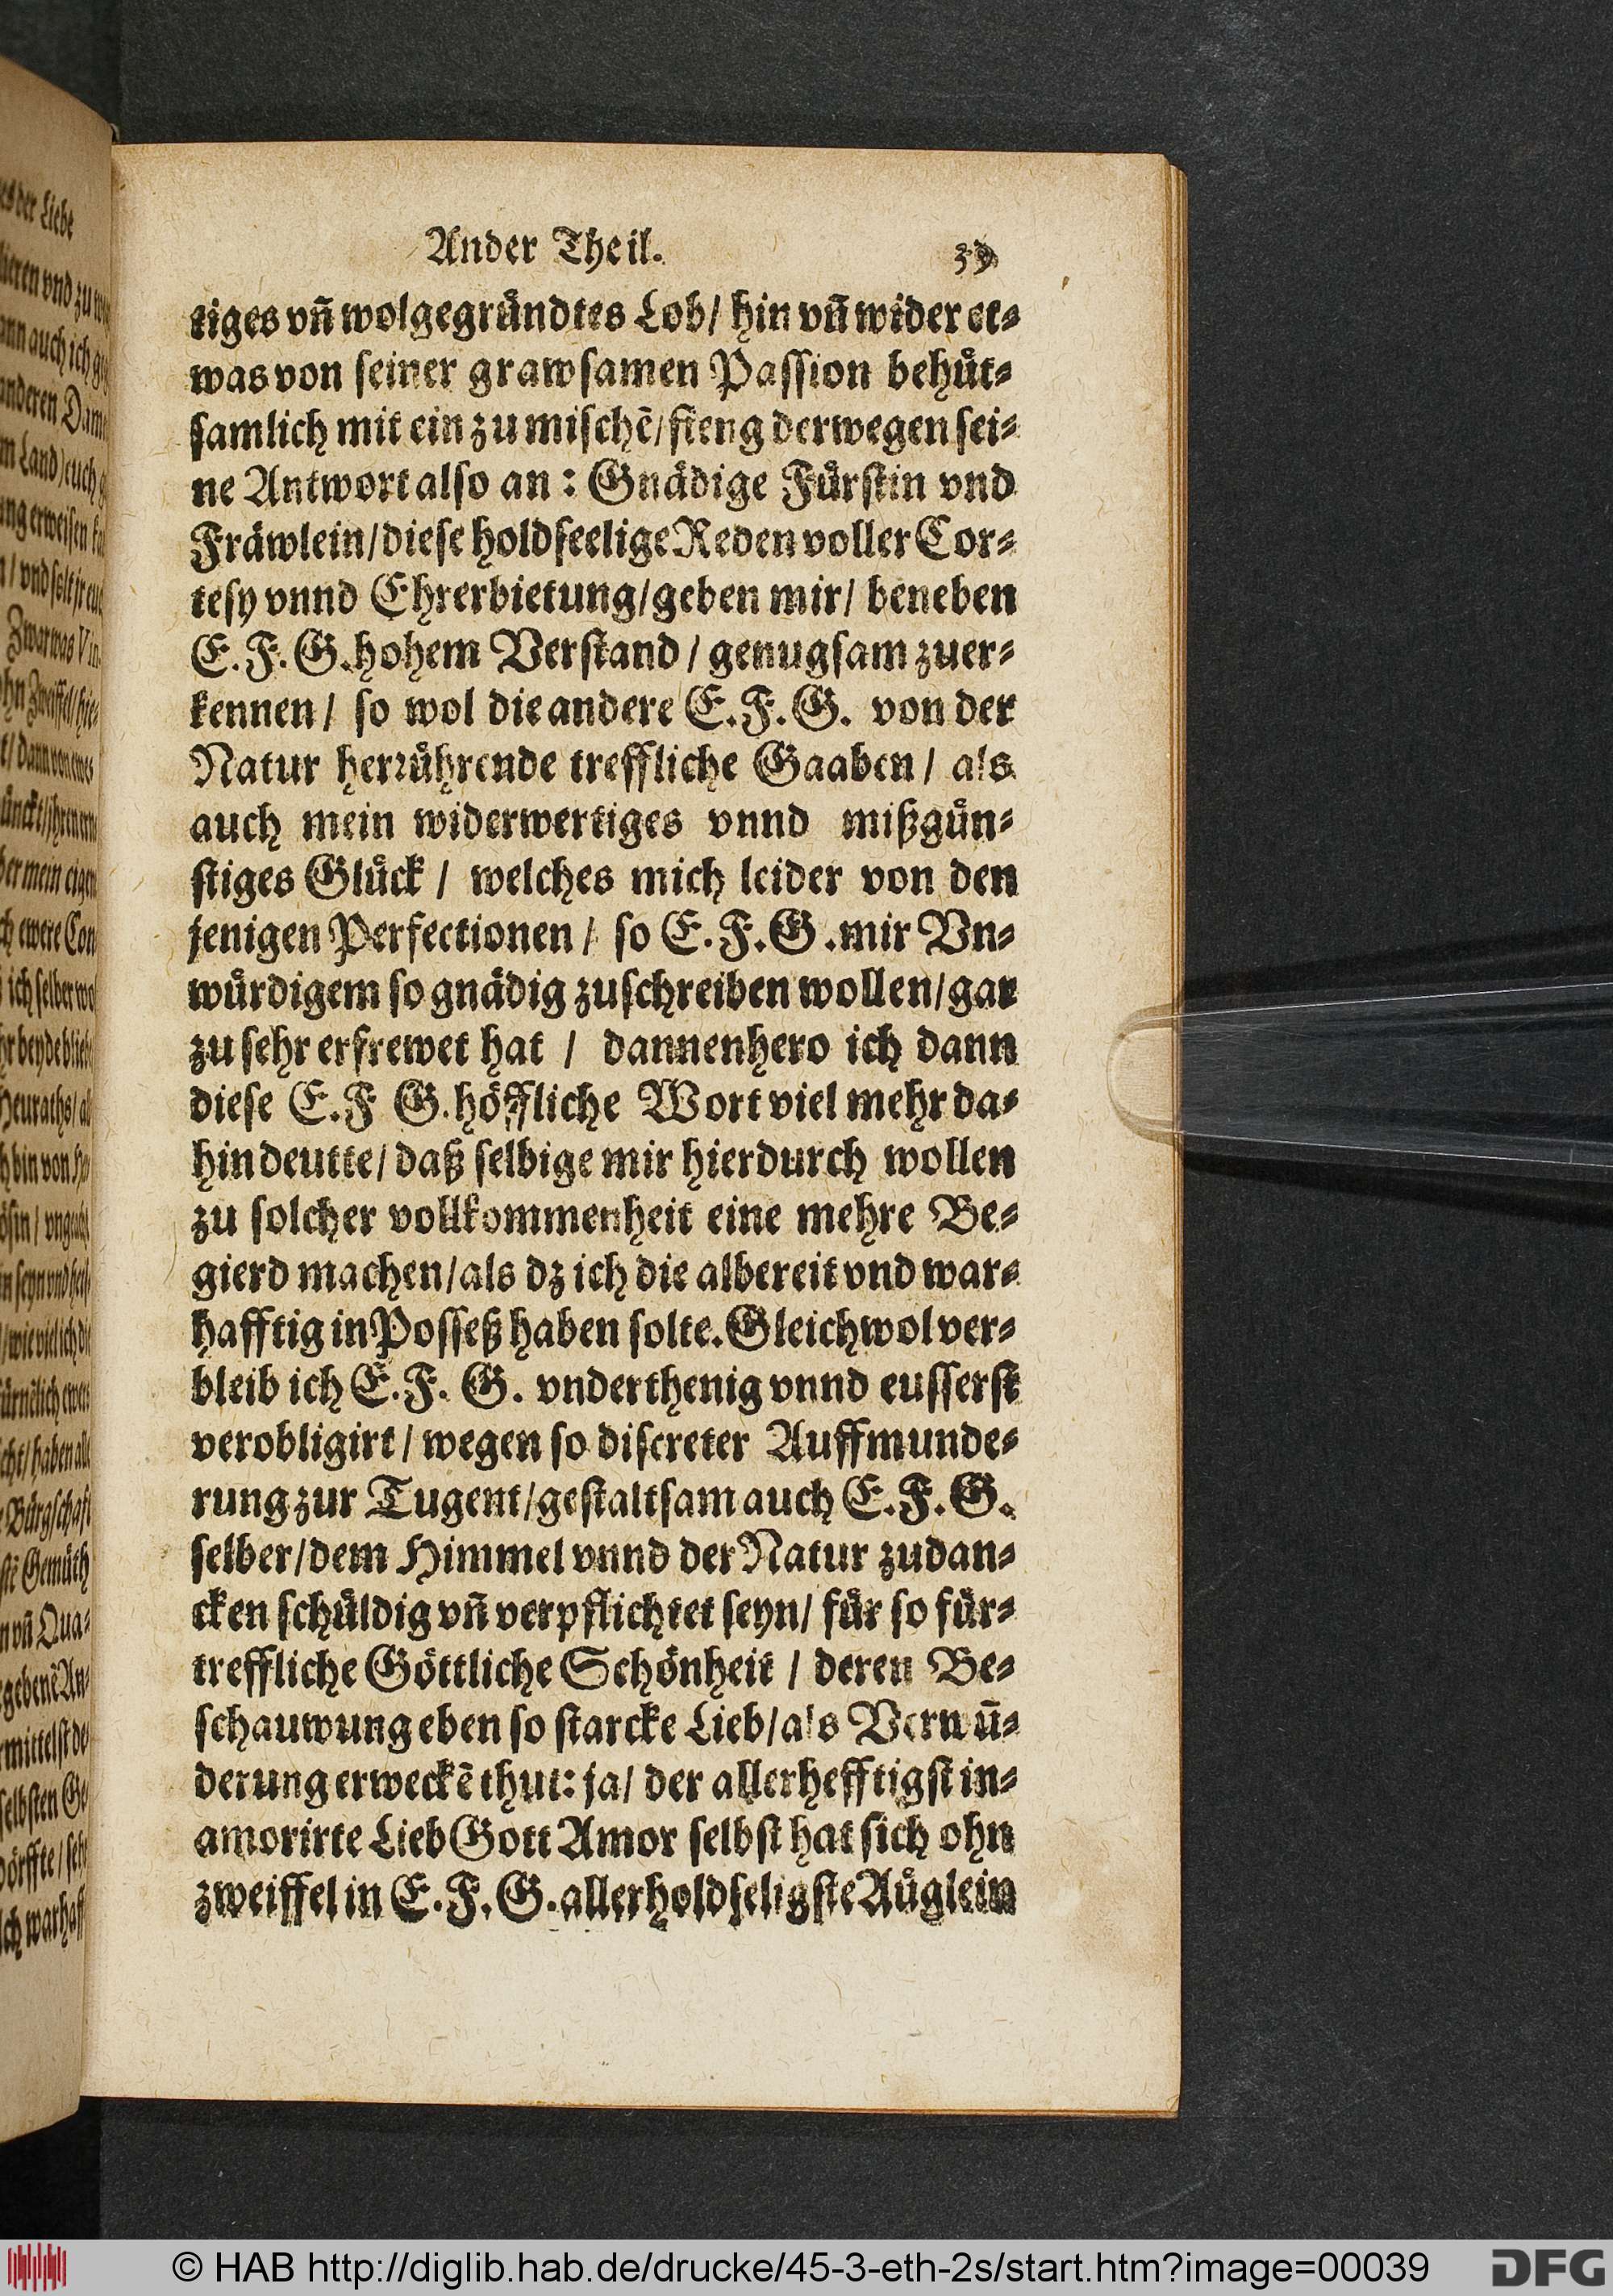 Ander Theil.
tiges vñ wolgegründtes Lob/ hin vñ wider et⸗
was von seiner grawsamen Passion behüt⸗
samlich mit ein zu mischẽ/ fieng derwegen sei⸗
ne Antwort also an: Gnädige Fürstin vnd
Fräwlein/ diese holdseelige Reden voller Cor⸗
tesy vnnd Ehrerbietung/ geben mir/ beneben
E. F. G. hohem Verstand/ genugsam zuer⸗
kennen/ so wol die andere E. F. G. von der
Natur herrührende treffliche Gaaben/ als
auch mein widerwertiges vnnd mißgün⸗
stiges Glück/ welches mich leider von den
jenigen Perfectionen/ so E. F. G. mir Vn⸗
würdigem so gnädig zuschreiben wollen/ gar
zu sehr erfrewet hat/ dannenhero ich dann
diese E. F G. höffliche Wort viel mehr da⸗
hin deutte/ daß selbige mir hierdurch wollen
zu solcher vollkommenheit eine mehre Be⸗
gierd machen/ als dz ich die albereit vnd war⸗
hafftig in Posseß haben solte. Gleichwol ver⸗
bleib ich E. F. G. vnderthenig vnnd eusserst
verobligirt/ wegen so discreter Auffmunde⸗
rung zur Tugent/ gestaltsam auch E. F. G.
selber/ dem Himmel vnnd der Natur zudan⸗
cken schüldig vñ verpflichtet seyn/ für so für⸗
treffliche Göttliche Schönheit/ deren Be⸗
schauwung eben so starcke Lieb/ als Verwũ⸗
derung erweckẽ thut: ja/ der allerhefftigst in⸗
amorirte Lieb Gott Amor selbst hat sich ohn
zweiffel in E. F. G. allerholdseligste Aüglein
© HAB http://diglib.hab.de/drucke/45-3-eth-2s/start.htm?image=00039
DFG